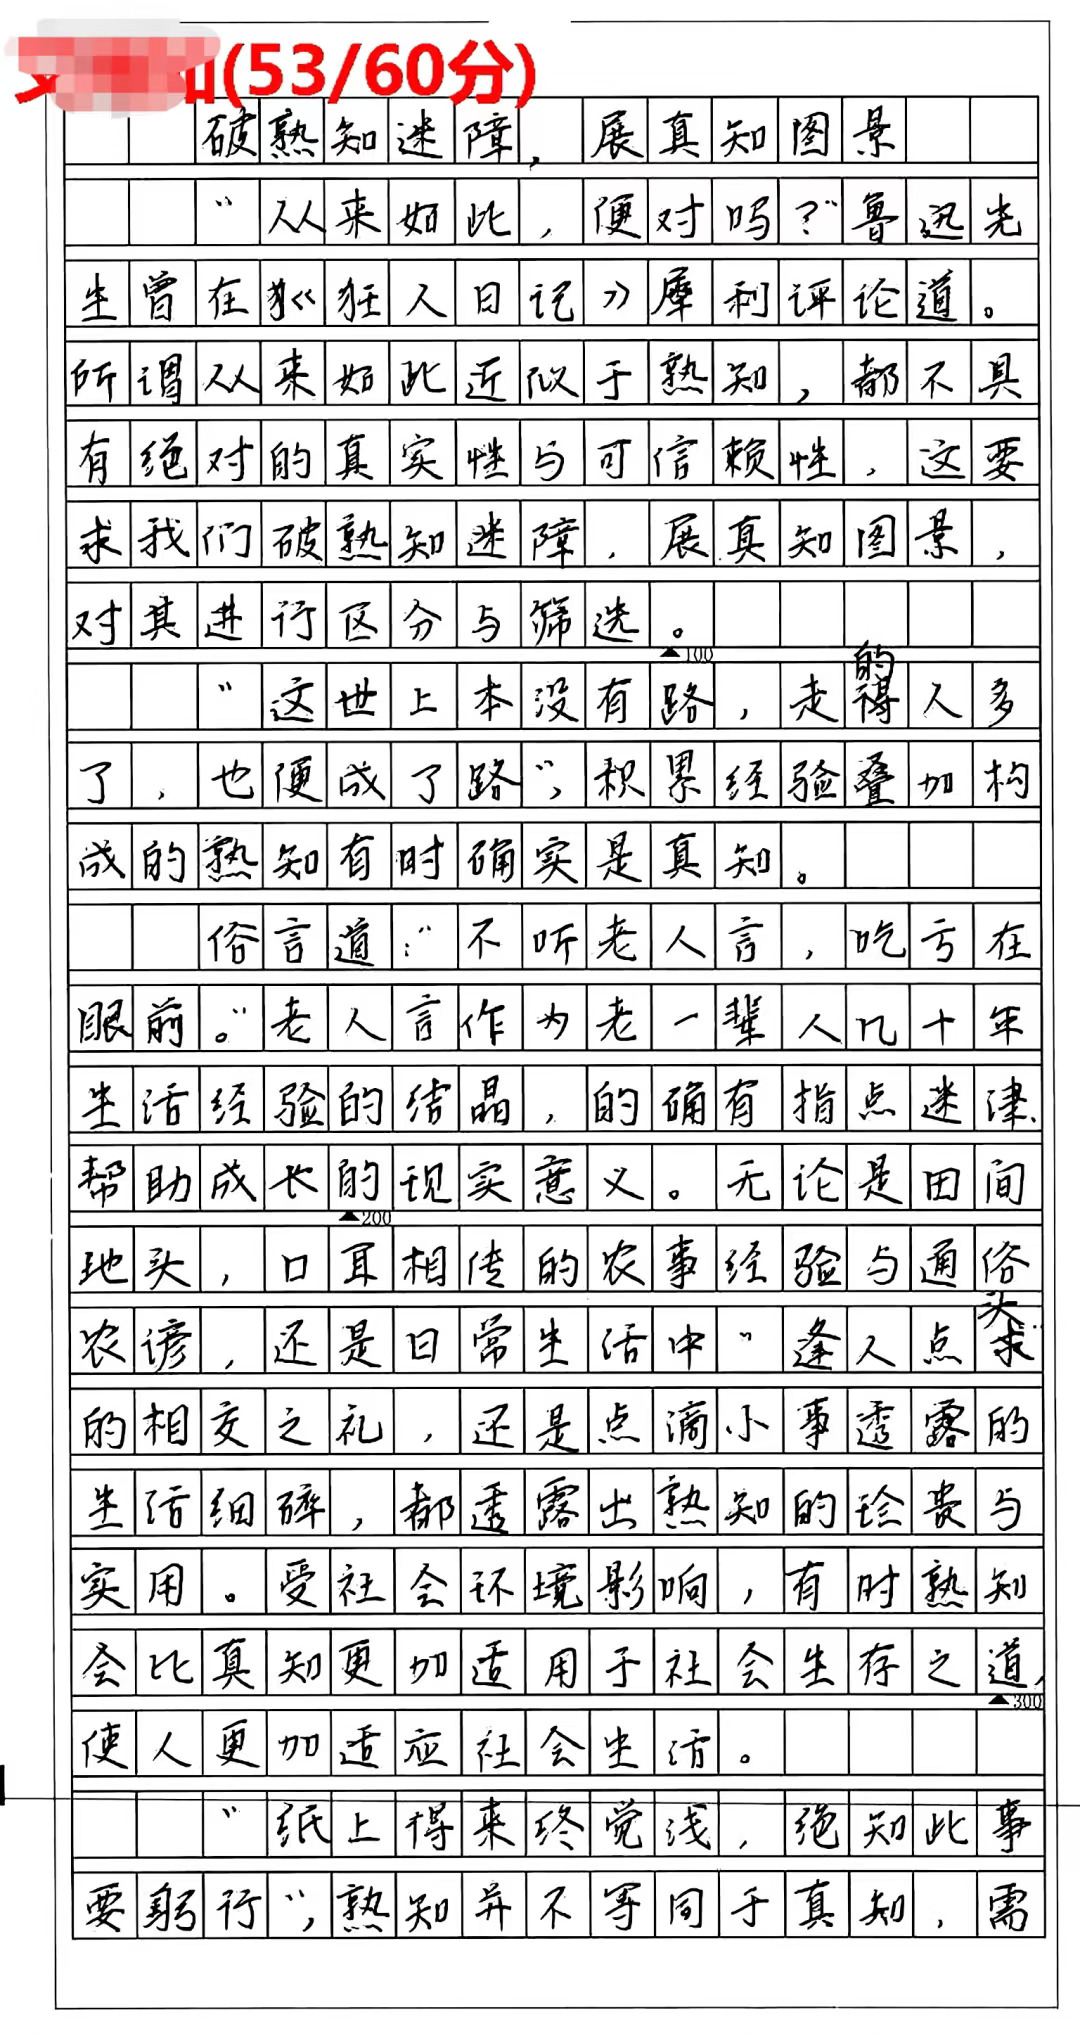 (53/60分)
破熟知迷障，展真知图景
“从来如此，便对吗？”鲁迅先
生曾在《狂人日记》犀利评论道。
所谓从来如此近似于熟知，都不具
有绝对的真实性与可信赖性，这要
求我们破熟知迷障，展真知图景，
对其进行区分与筛选。
▲100
“这世上本没有路，走的人多
了，也便成了路”，积累经验叠加构
成的熟知有时确实是真知。
俗言道：“不听老人言，吃亏在
眼前。”老人言作为老一辈人几十年
生活经验的结晶，的确有指点迷津、
帮助成长的现实意义。无论是田间
▲200
地头，口耳相传的农事经验与通俗
农谚，还是日常生活中“逢人点头”
的相交之礼，还是点滴小事透露的
生活细碎，都透露出熟知的珍贵与
实用。受社会环境影响，有时熟知
会比真知更加适用于社会生存之道，
▲300
使人更加适应社会生活。
“纸上得来终觉浅，绝知此事
要躬行”，熟知并不等同于真知，需